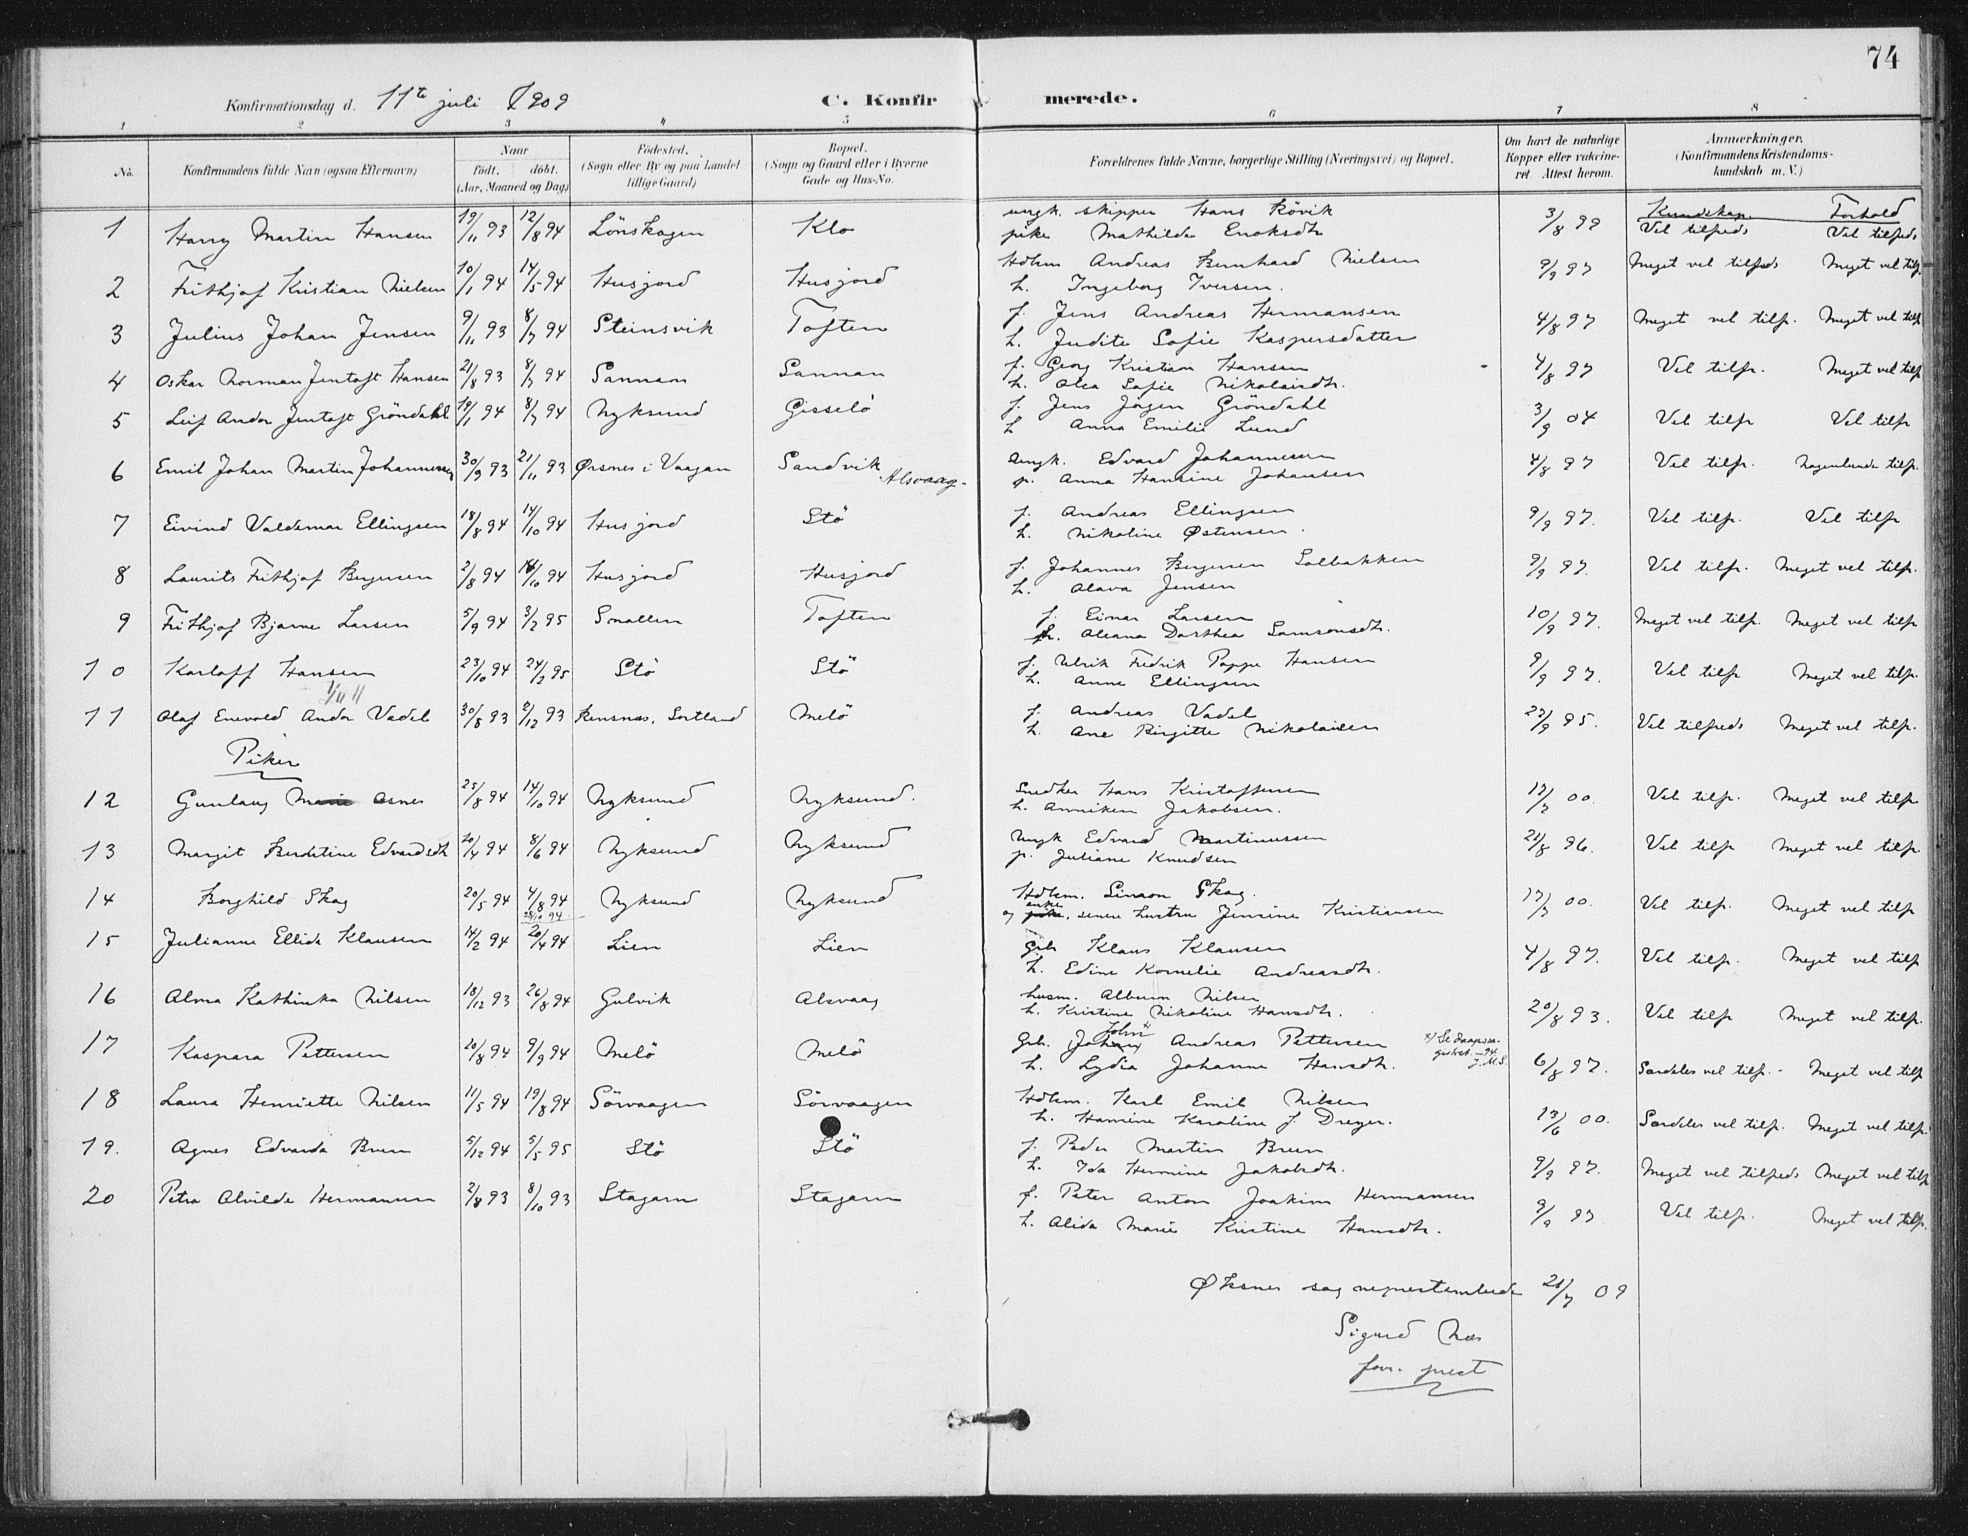 74
Konfirmationsdag d. 11te juli 1909 C. Konfirmerede.
1 2 3 4 5 6 7 8
No. Konfirmandens fulde Navn (ogsaa Efternavn) Naar födt. döbt. (Aar, Maaned og Dag) Födested. (Sogn eller By og paa Landet tillige Gaard) Bopæl. (Sogn og Gaard eller i Byerne Gade og Hus-No. Forældrenes fulde Navne, borgerlige Stilling (Næringsvei) og Bopæl. Om havt de naturlige Kopper eller vakcineret. Attest herom. Anmærkninger. (Konfirmandens Kristendomskundskab m. V.)
Kundskap. Forhold
1 Harry Martin Hansen 19/11 93 12/8 94 Lönskogen Klo ungk. skipper Hans Rövik 3/8 99 Vel tilfreds Vel tilfreds
pike Mathilde Enoksdtr
2 Frithjof Kristian Nielsen 10/1 94 14/5 94 Husjord Husjord Hdlsm Andreas Bernhard Nielsen 9/9 97 Meget vel tilfreds Meget vel tilf.
h. Ingeborg Iversen.
3 Julius Johan Jensen 9/11 93 8/7 94 Steinsvik Toften f. Jens Andreas Hermansen 4/8 97 Meget vel tilfr. Meget vel tilf
h. Judite Sofie Kaspersdatter
4 Oskar Norman Jentoft Hansen 21/8 93 8/7 94 Sannan Sannan f. Georg Kristian Hansen 4/8 97 Vel tilfr. Meget vel tilf
h. Alea Sofie Nikolaisdtr.
5 Leif Andor Jentoft Gröndahl 19/1 94 8/7 94 Nyksund Gisselö f. Jens Jörgen Gröndahl 3/9 04 Vel tilfr Vel tilfr
h Anna Emilie Lund
6 Emil Johan Martin Johannessen 30/9 93 21/11 93 Örsnes i Vaagan Sandvik Alsvaag- ungk. Edvard Johannessen 4/8 97 Vel tilfr. Nogenlunde tilfr.
p. Anna Hansine Johansen
7 Eivind Valdemar Ellingsen 18/8 94 14/10 94 Husjord Stö f. Andreas Ellingsen 9/9 97. Vel tilfr. Vel tilfr
h. Nikoline Østensen.
8 Laurits Frithjof Bergersen 2/8 94 14/10 94 Husjord Husjord f. Johannes Bergersen Solbakken 9/9 97. Vel tilfr. Meget vel tilfr.
h. Olava Jensen
9 Frithjof Bjarne Larsen 5/9 94 3/2 95 Smallem Toften f. Einar Larsen 10/9 97. Meget vel tilfr. Meget vel tilfr
h. Oleana Dorthea Samsonsdtr.
10 Karloff Hansen 23/10 94 24/2 95 Stö Stö f. Ulrik Fredrik Poppe Hansen 9/9 97. Vel tilfr Meget vel tilfr.
h. Anne Ellingsen
11 Olaf Enevold Andor Vadel 30/8 93 2/12 93 Rensnæs, Sortland Melö f. Andreas Vadel 95. Vel tilfreds Meget vel tilfr.
h. Ane Birgitte Nikolaisen
Piker
12 Gunlaug Marie Asnes 25/8 94 14/10 94 Nyksund Nyksund. Snedker Hans Kristoffersen 17/7 00. Vel tilfr. Meget vel tilfr
h. Anniken Jakobsen.
13 Margit Bendetine Edvardsdtr 20/4 94 8/6 94 Nyksund Nyksund Ungk Edvard Martinussen 21/8 96. Vel tilfr Meget vel tilfr.
p. Juliane Knudsen
14 Borghild Skog 20/5 94 4/8 94 28/10 94 Nyksund Nyksund Hdlsm. Simon Skog. 17/7 00. Vel tilfr. Meget vel tilfr
og pike enke, senere hustru Jensine Kristiansen
15 Julianne Ellida Klausen 14/2 94 20/4 94 Lien Lien Grb Klaus Klausen 4/8 97. Vel tilfr. Meget vel tilfr
h. Edine Kornelie Andreasdtr.
16 Alma Kathinka Nilsen 18/12 93 26/8 94 Gulvik Alsvaag husm. Album Nilsen 20/8 93. Vel tilfr Meget vel tilfr.
h. Kristine Nikoline Hansdtr.
17 Kaspara Pettersen 20/8 94 9/9 94 Melö Melö Grb. Johan John x) Andreas Pettersen x) Se daapsregistret. -94. J.M.S. 6/8 97. Særdeles vel tilfr. - Meget vel tilfr
h. Lydia Johanne Hansdtr.
18 Laura Henriette Nilsen 11/5 94 19/8 94 Sörvaagen Sörvaagen Hdlsm. Karl Emil Nilsen 13/6 00. Særdeles vel tilfr. Meget vel tilfr.
h. Hansine Karoline J. Dreyer.
19. Agnes Edvarda Bruun 5/12 94 5/5 95 Stö Stö f. Peder Martin Bruun 9/9 97. Meget vel tilfreds Meget vel tilfr
h. Ida Hermine Jakobsdtr.
20 Petra Alvilde Hermansen 2/8 93 8/10 93 Stagarn Stagarn f. Peter Anton Joakim Hermansen 9/9 97 Vel tilfr. Meget vel tilfr.
h. Alida Marie Kristine Hansdtr.
Øksnes sogneprestembede 21/7 09
Sigurd Næs
fung. prest